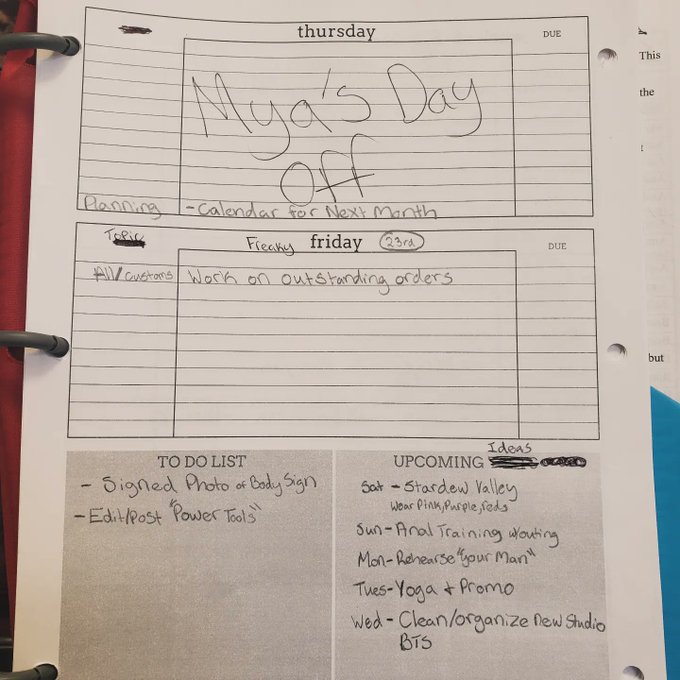 thursday
DUE
Mya's Day
Off
Planning
- Calendar for Next Month
Topic
Freaky friday 23rd
DUE
All/customs
Work on outstanding orders
TO DO LIST
- Signed Photo of Body Sign
- Edit/Post "Power Tools"
Ideas
UPCOMING
Sat - Stardew Valley
Wear Pink, Purple, Reds
Sun - Anal Training w/outing
Mon - Rehearse "Your Man"
Tues - Yoga + Promo
Wed - Clean/organize new studio
BTS
This
the
but